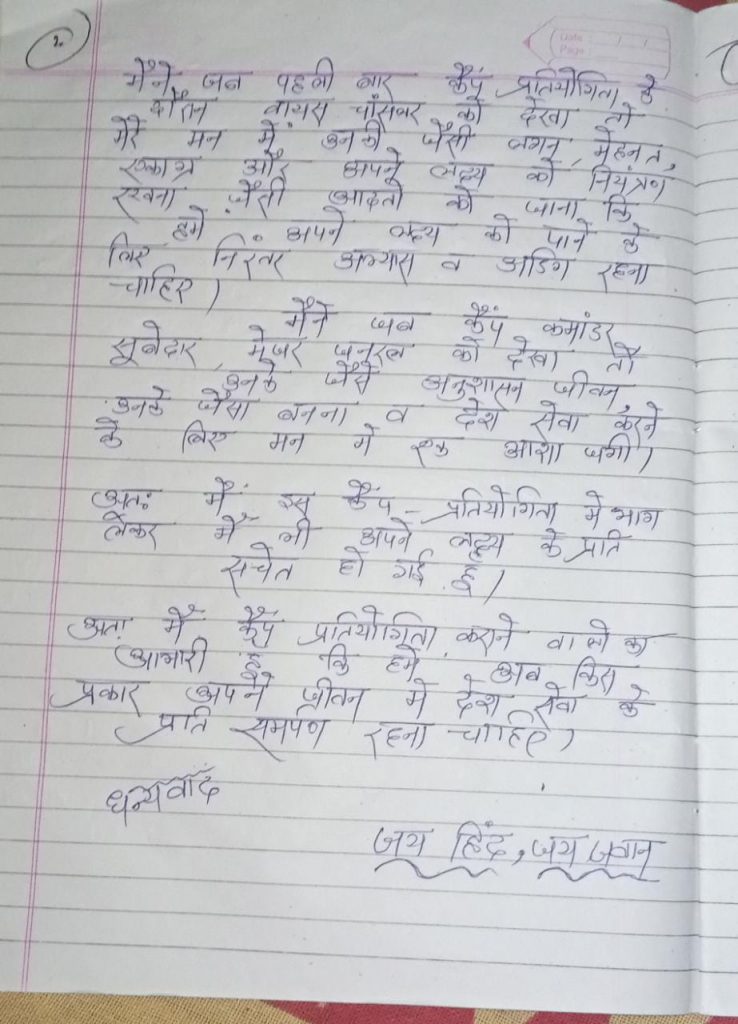 2.
Date : / /
Page :
मैंने जब पहली बार कैंप प्रतियोगिता के
दौरान वायस चांसलर को देखा तो
मेरे मन में उनकी जैसी लगन, मेहनत,
एकाग्र और अपने लक्ष्य को नियंत्रण
रखना जैसी आदतों को जाना कि
हमें अपने लक्ष्य को पाने के
लिए निरंतर अभ्यास व अडिग रहना
चाहिए।
मैंने जब कैंप कमांडर
सूबेदार, मेजर जनरल को देखा तो
उनके जैसे अनुशासन जीवन,
उनके जैसा बनना व देश सेवा करने
के लिए मन में एक आशा जगी।
अतः मैं इस कैंप प्रतियोगिता में भाग
लेकर मैं भी अपने लक्ष्य के प्रति
सचेत हो गई हूं।
अतः मैं कैंप प्रतियोगिता कराने वाले का
आभारी हूं कि हमें अब किस
प्रकार अपने जीवन में देश सेवा के
प्रति समर्पण रहना चाहिए।
धन्यवाद
जय हिंद, जय जवान